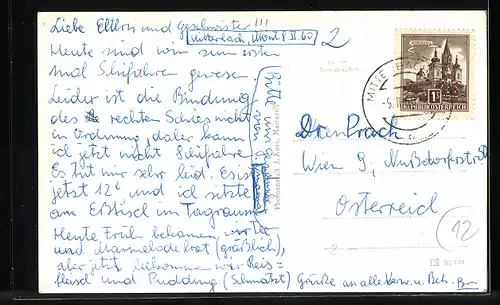 Liebe Eltern und Geschwister!!!
Mitterbach, Mont. 8 II. 60
2
Heute sind wir zum ersten
mal Schifahren gewesen.
Leider ist die Bindung
des rechten Schies nicht
in Ordnung, daher kann
ich jetzt nicht Schifahren.
Es tut mir sehr leid. Es ist
jetzt 12h und ich sitze
am Eßtisch im Tagraum.
Heute Früh bekamen wir Tee
und Marmeladebrot (gräßlich),
aber jetzt bekommen wir Reis-
fleisch und Pudding (Schmatz!) Grüße an alle Verw. u. Bek.
Bitte
REPUBLIK ÖSTERREICH
Drew Prach
Wien 9, Nußdorferstr
Österreich
12